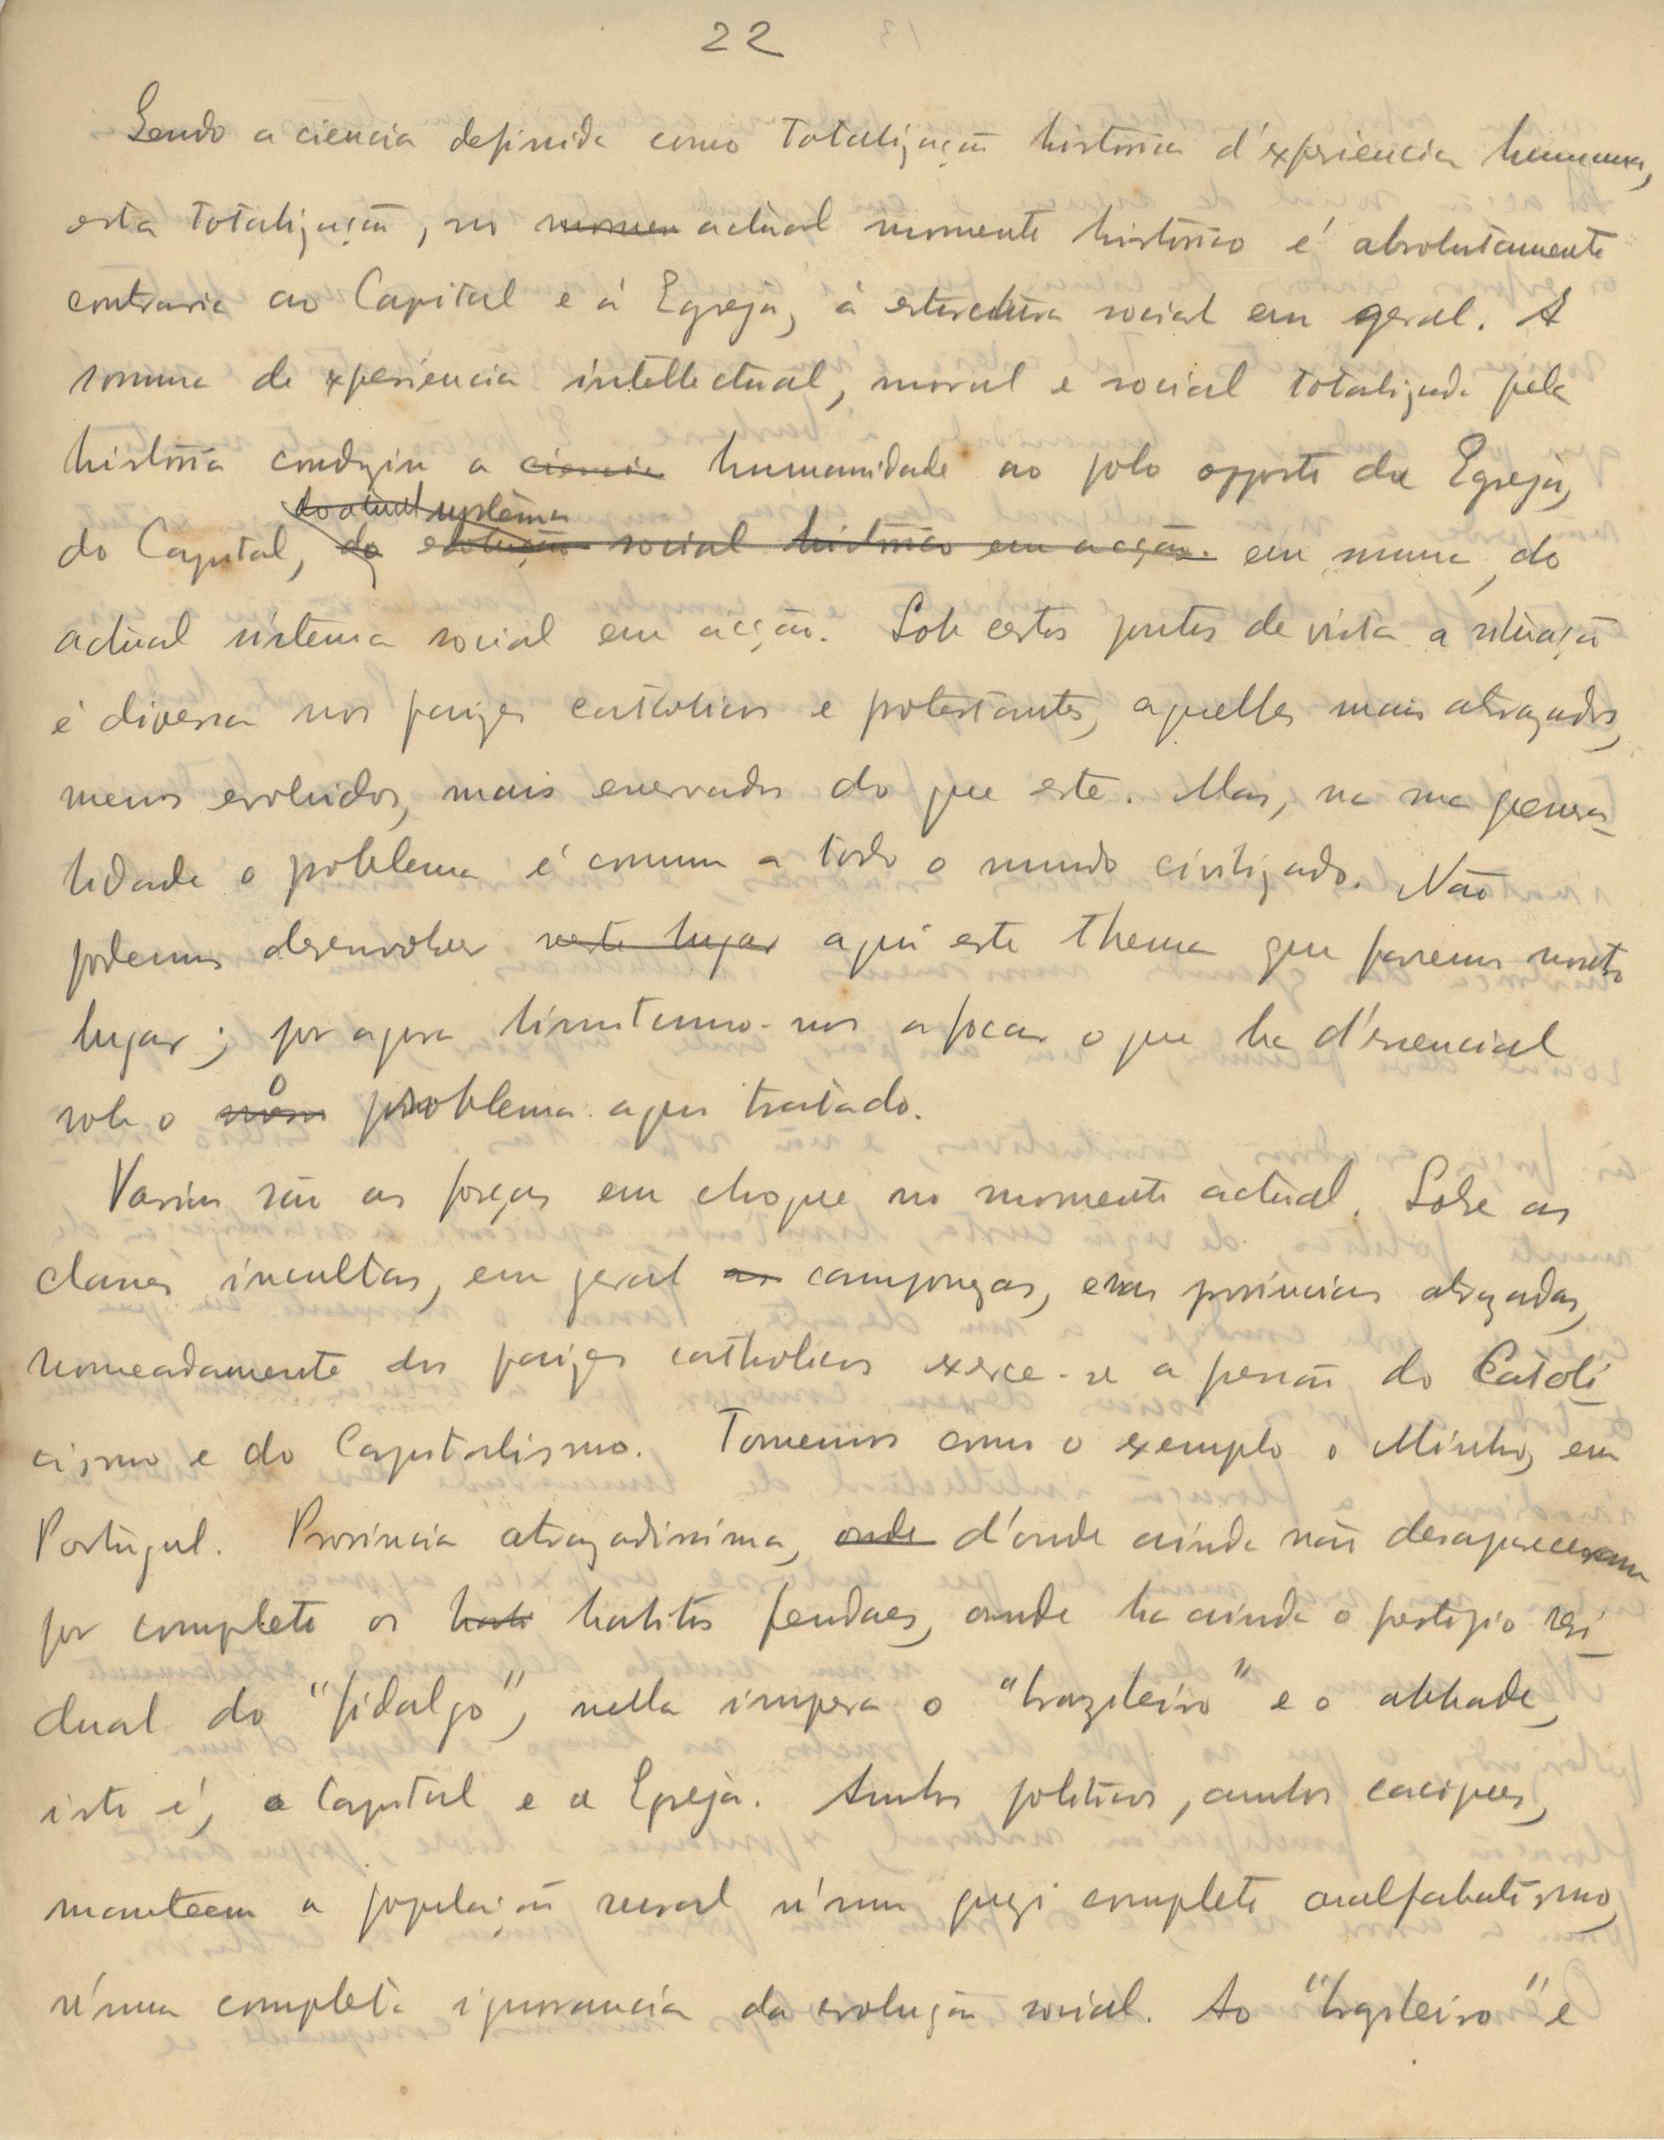 22
Sendo a ciencia definida como totalização historica d'experiencia humana,
esta totalização, no momen actual momento historico é absolutamente
contraria ao Capital e á Egreja, á estructura social em geral. A
somma de experiencia intellectual, moral e social totalizada pela
historia conduziu a ciencia humanidade ao polo opposto da Egreja,
do actual systema
do Capital, do evolução social historico em acção. em summa, do
actual sistema social em acção. Sob certos pontos de vista a situação
é diversa nos paizes catholicos e protestantes, aquelles mais atrazados,
menos evoluidos, mais enervados do que este. Mas, na sua genera-
lidade o problema é comum a todo o mundo civilizado. Não
podemos desenvolver neste lugar aqui este thema que faremos noutro
lugar; por agora limitamo-nos a focar o que ha d'essencial
sob o problema aqui tratado.
Varias são as forças em choque no momento actual. Sobre as
classes incultas, em geral as camponezas, e nas provincias atrazadas,
nomeadamente dos paizes catholicos exerce-se a pressão do Catoli
cismo e do Capitalismo. Tomemos como o exemplo o Minho, em
Portugal. Provincia atrazadissima, onde d'onde ainda não desapareceram
por completo os habi habitos feudaes, onde ha ainda o prestigio resi-
dual do "fidalgo", nella impera o "brazileiro" e o abbade,
isto é, o Capital e a Egreja. Ambos politicos, ambos caciques,
manteem a população rural n'um quazi completo analfabetismo,
n'uma completa ignorancia da evolução social. Ao "brazileiro" e